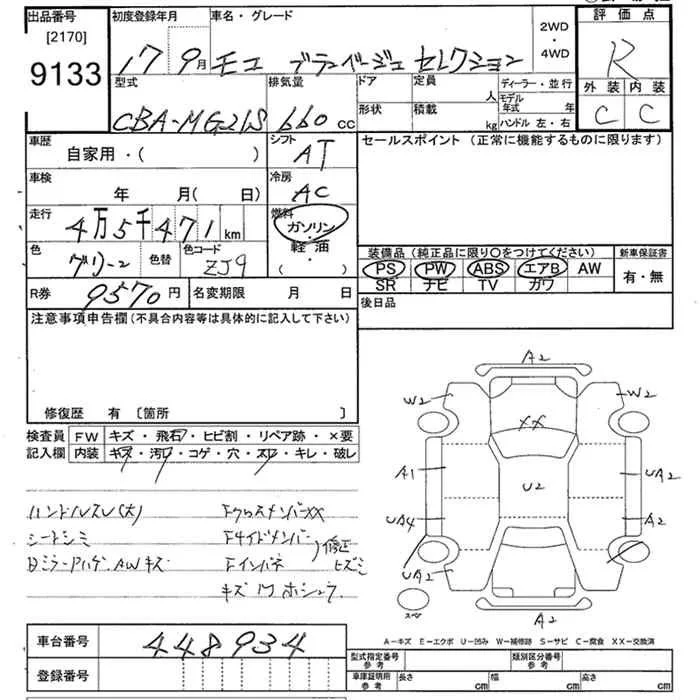 出品番号 初度登録年月 車名・グレード 2WD・4WD 評価点
[2170]
9133 17 9月 モコ ブランベージュ セレクション R
型式 排気量 ドア 定員 人 ディーラー・並行 外装 内装
CBA-MG21S 660cc 形状 積載 kg モデル年式 年 C C
ハンドル 左・右
車歴 自家用・( ) シフト AT セールスポイント (正常に機能するものに限ります)
車検 年 月(日) 冷房 AC
走行 4万5千471km 燃料 ガソリン・軽油・( )
色 グリーン 色替 色コード ZJ9 装備品(純正品に限り○をつけてください) 新車保証書
PS PW ABS エアB AW 有・無
SR ナビ TV カワ
R券 9570円 名変期限 月 日 後日品
注意事項申告欄(不具合内容等は具体的に記入して下さい)
修復歴 有 〔箇所 〕
検査員 FW キズ・飛石・ヒビ割・リペア跡・×要
記入欄 内装 キズ・汚レ・コゲ・穴・スレ・キレ・破レ
ハンドルスレ(大) FクロスメンバーXX
シートシミ Fサイドメンバー
Dミラーアハゲ、AWキズ Fインパネ 修正 ヒズミ
A2
W2 W2
XX
A1 U2 UA2
UA4 A2
UA2 UA2
スペア A2
A-キズ E-エクボ U-凹み W-補修跡 S-サビ C-腐食 XX-交換済
車台番号 448934
型式指定番号 参考 類別区分番号 参考
登録番号
車庫証明用 参考 長さ cm 幅 cm 高さ cm